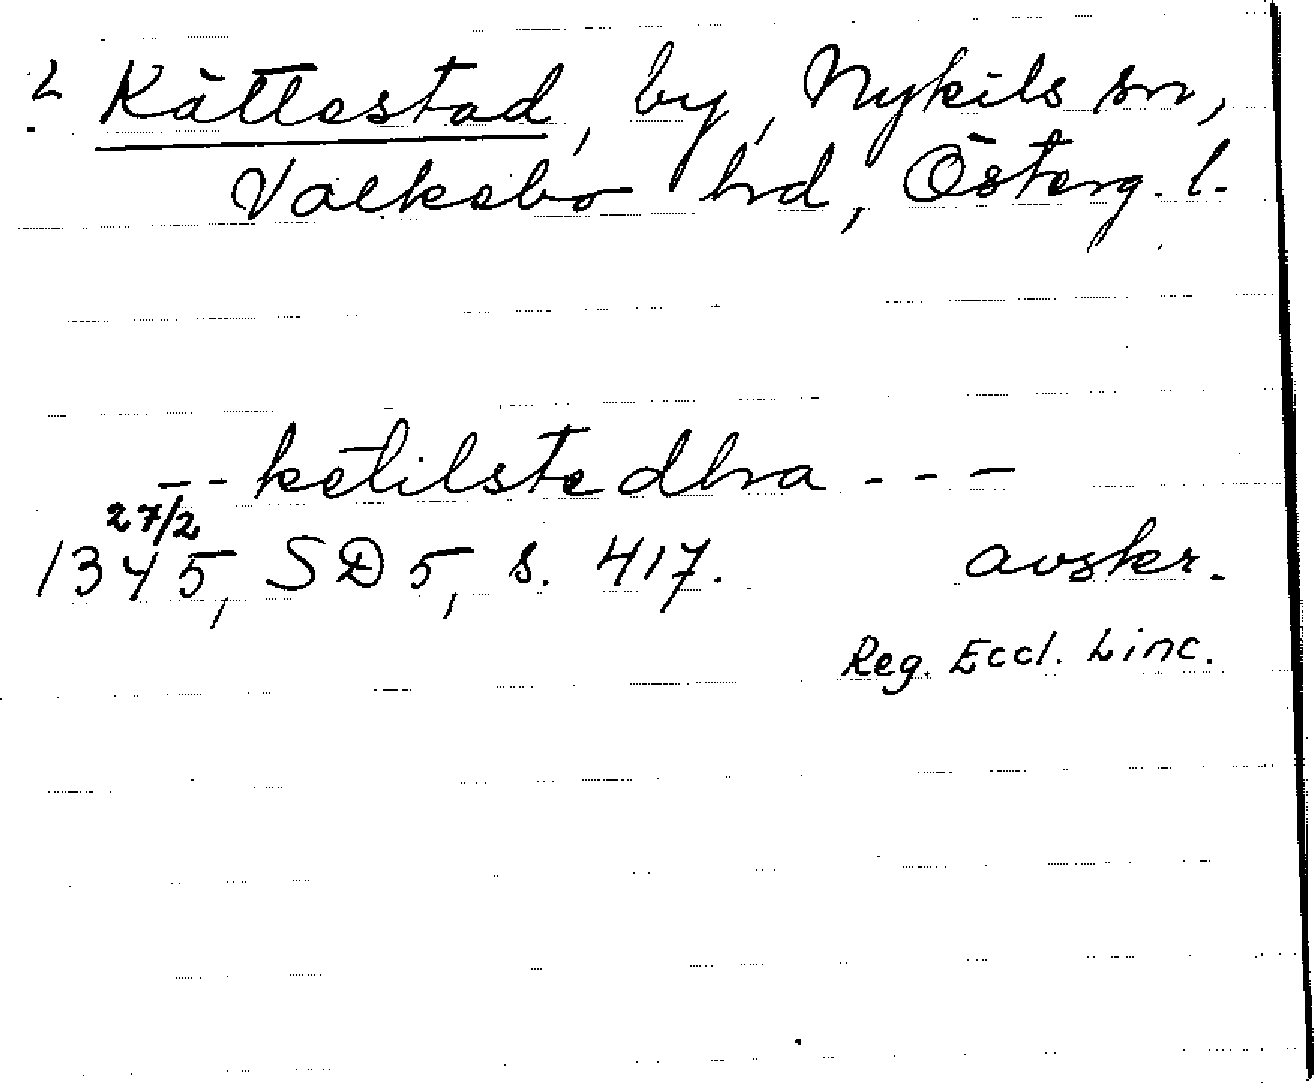 ? Kättestad, by, Nykils sn,
Valkebo hd, Österg. l.
- - ketilstedhra - - -
27/2
1345, SD 5, s. 417. avskr.
Reg. Eccl. Linc.